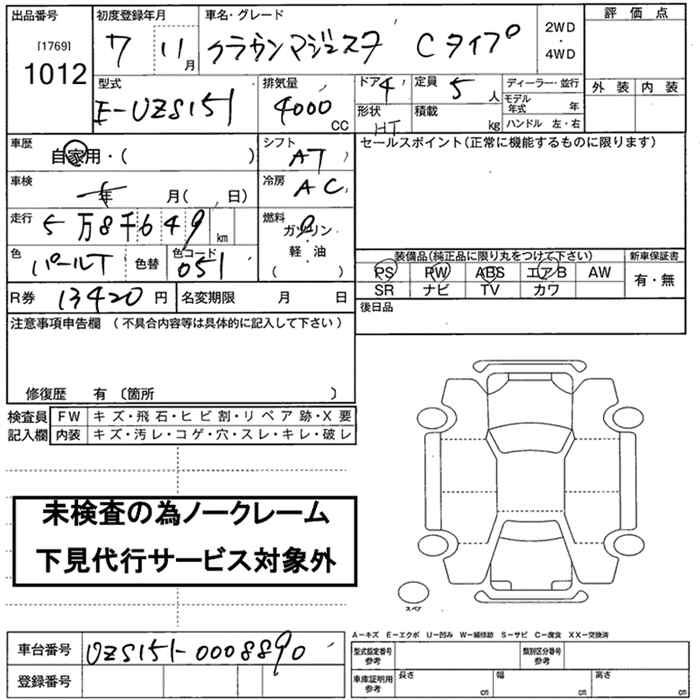 出品番号 初度登録年月 車名・グレード 評価点
[1769] 7 11月 クラウンマジェスタ Cタイプ 2WD・4WD
1012 外装 内装
型式 排気量 ドア 4 定員 5人 ディーラー・並行
E-UZS151 4000 CC 形状 HT 積載 kg モデル年式 年
ハンドル 左・右
車歴 自家用・( ) シフト AT セールスポイント(正常に機能するものに限ります)
車検 年 月( 日) 冷房 AC
走行 5万8千649km 燃料 ガソリン
軽・油
( )
色 パールT 色替 色コード 051
装備品(純正品に限り丸をつけて下さい) 新車保証書
PS PW ABS エアB AW 有・無
SR ナビ TV カワ
R券 13420円 名変期限 月 日 後日品
注意事項申告欄 (不具合内容等は具体的に記入して下さい)
修復歴 有 〔箇所 〕
検査員 FW キズ・飛石・ヒビ割・リペア跡・X要
記入欄 内装 キズ・汚レ・コゲ・穴・スレ・キレ・破レ
未検査の為ノークレーム
下見代行サービス対象外
スペア
A-キズ E-エクボ U-凹み W-補修跡 S-サビ C-腐食 XX-交換済
車台番号 UZS151-0008890 型式指定番号 参考 類別区分番号 参考
登録番号 車庫証明用 参考 長さ cm 幅 cm 高さ cm